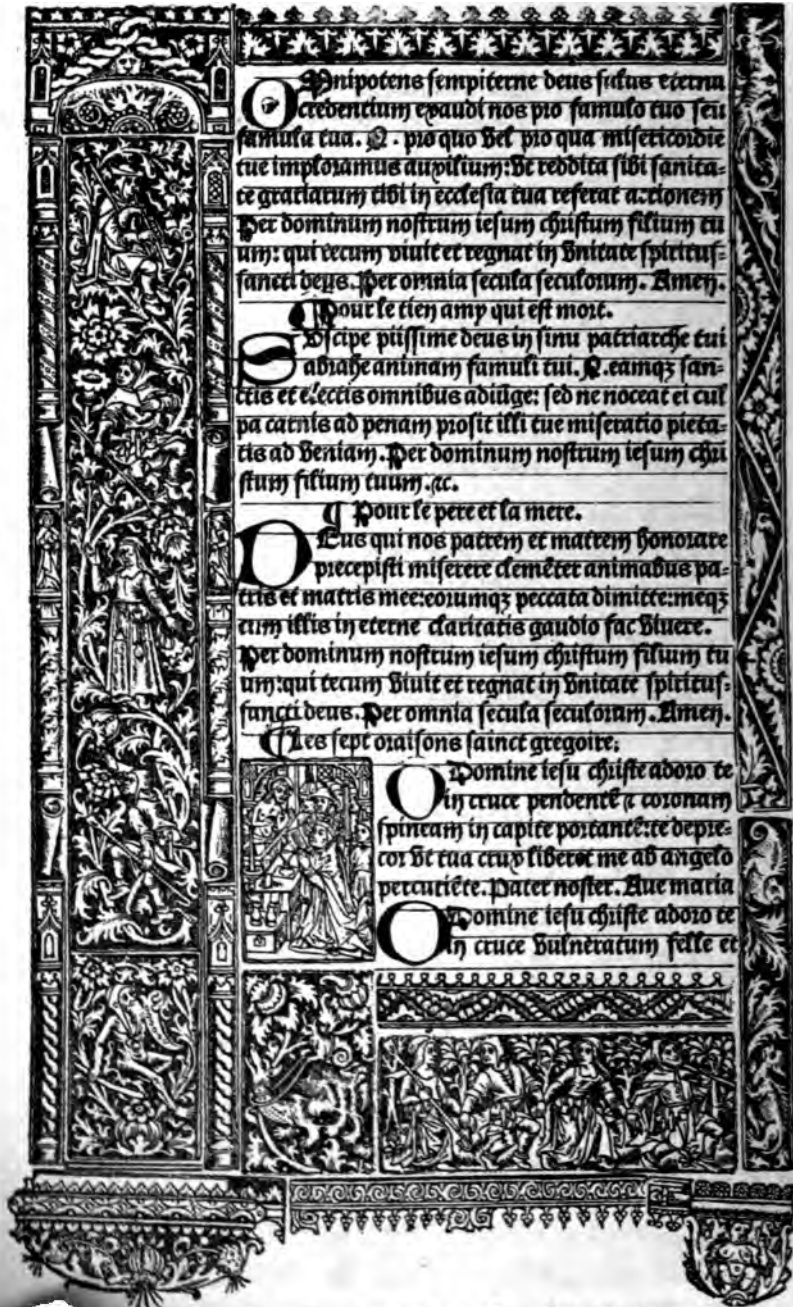 OMnipotens sempiterne deus salus eterna
credentium exaudi nos pro famulo tuo seu
famula tua. N. pro quo vel pro qua misericordie
tue imploramus auxilium: vt reddita sibi sanita-
te gratiarum tibi in ecclesia tua referat actionem
Per dominum nostrum iesum christum filium tu
um: qui tecum viuit et regnat in vnitate spiritus-
sancti deus. Per omnia secula seculorum. Amen.
¶ Pour le tien amy qui est mort.
SVscipe piissime deus in sinu patriarche tui
abrahe animam famuli tui. N. eamqꝫ san-
ctis et electis omnibus adiuge: sed ne noceat ei cul
pa carnis ad penam prosit illi tue miseratio pieta-
tis ad veniam. Per dominum nostrum iesum chri
stum filium tuum. ⁊c.
¶ Pour le pere et la mere.
DEus qui nos patrem et matrem honorare
precepisti miserere clemēter animabus pa-
tris et matris mee: eorumqꝫ peccata dimitte: meqꝫ
cum illis in eterne claritatis gaudio fac viuere.
Per dominum nostrum iesum christum filium tu
um: qui tecum viuit et regnat in vnitate spiritus-
sancti deus. Per omnia secula seculoram. Amen.
¶ Les sept oraisons sainct gregoire.
O Domine iesu christe adoro te
in cruce pendentē ⁊ coronam
spineam in capite portantē: te depre-
cor vt tua crux liberet me ab angelo
percutiēte. Pater noster. Aue maria
O Domine iesu christe adoro te
in cruce vulneratum felle et